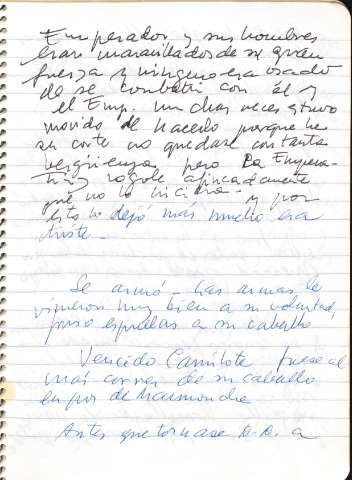 Emperador y sus hombres
eran maravillados de su gran
fuerza y ninguno era osado
de se combatir con él y
el Emp. muchas veces estuvo
movido de hacerlo porque
su corte no quedase con tanta
vergüenza pero la Empera-
triz rogole afincadamente
que no lo hiciera - y por
esto lo dejó mas mucho era
triste -
Se armó - las armas le
vinieron muy bien a su voluntad,
puso espuelas a su caballo
Vencido Camilote fuese al
más correr de su caballo
en pos de Maimonda
Antes que tornase D.D. a